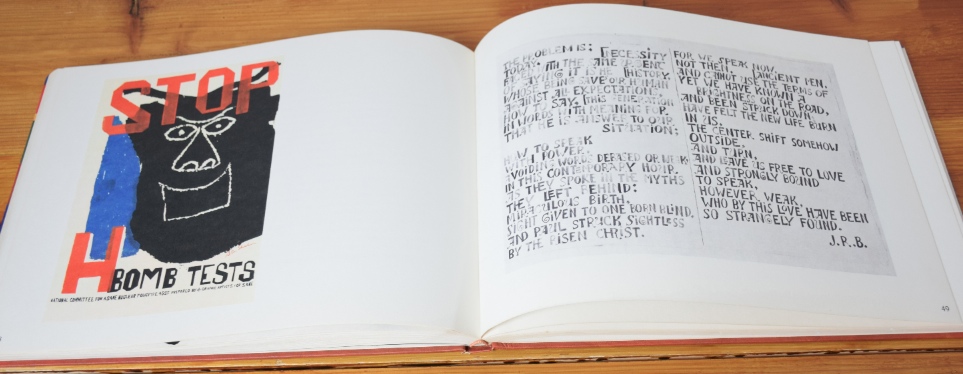 STOP
H BOMB TESTS
NATIONAL COMMITTEE FOR A SANE NUCLEAR POLICY
THE PROBLEM IS: NECESSITY
TODAY, WITH THE
OF SAYING IT IS HE
WHOSE BEING GAVE OR HUMAN
AGAINST ALL EXPECTATION:
HOW TO SAY, THIS GENERATION
IN WORDS WITH MEANING FOR
THAT HE IS ANSWER TO OUR
SITUATION:
HOW TO SPEAK
WITH POWER,
AVOIDING WORDS DEBASED OR WEAK
IN THE CONTEMPORARY HOUR,
AS THEY SPOKE IN THE MYTHS
THEY LEFT BEHIND:
MIRACULOUS BIRTH,
SIGHT GIVEN TO ONE BORN BLIND,
AND PAUL STRUCK SIGHTLESS
BY THE RISEN CHRIST.
FOR WE SPEAK NOW,
NOT THEN, ANCIENT MEN,
AND CANNOT USE THE TERMS OF
YET WE HAVE KNOWN A
BRIGHTNESS ON THE ROAD,
AND BEEN STRUCK DOWN,
HAVE FELT THE NEW LIFE BURN
IN US,
THE CENTER SHIFT SOMEHOW
OUTSIDE,
AND TURN,
AND LEAVE US FREE TO LOVE
AND STRONGLY BOUND
TO SPEAK,
HOWEVER WEAK,
WHO BY THIS LOVE HAVE BEEN
SO STRANGELY FOUND.
J.P.B.
49